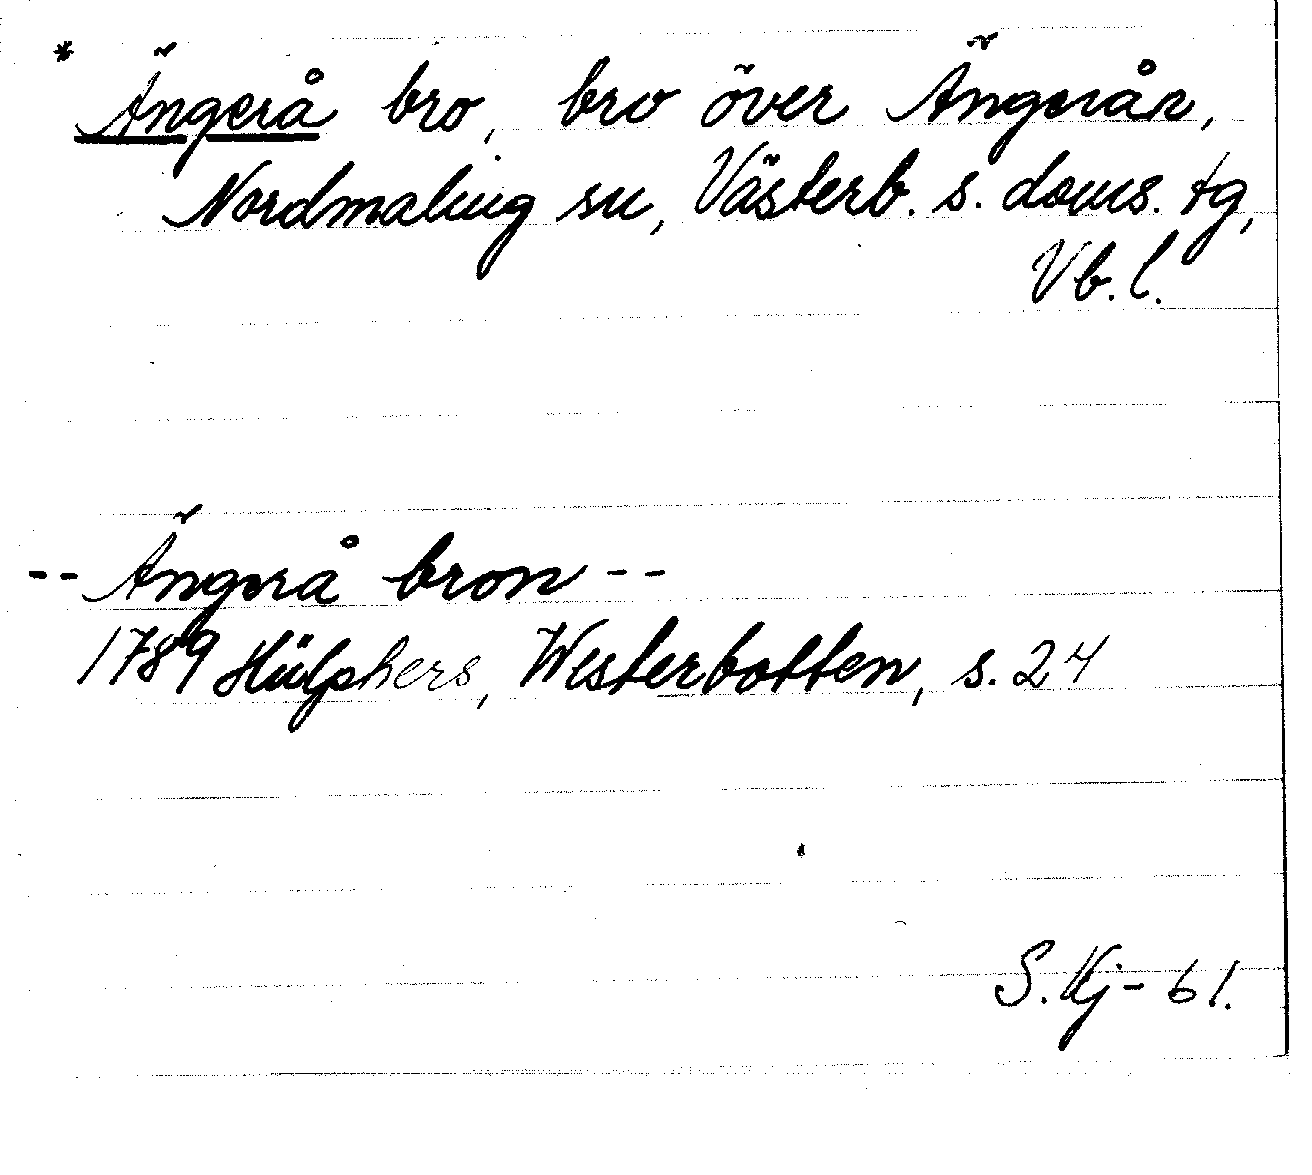 * Ängerå bro, bro över Ängerån,
Nordmaling sn, Västerb. s. doms. tg,
Vb. l.
-- Ängerå bron --
1789 Hülphers, Westerbotten, s. 24
S. Kj - 61.